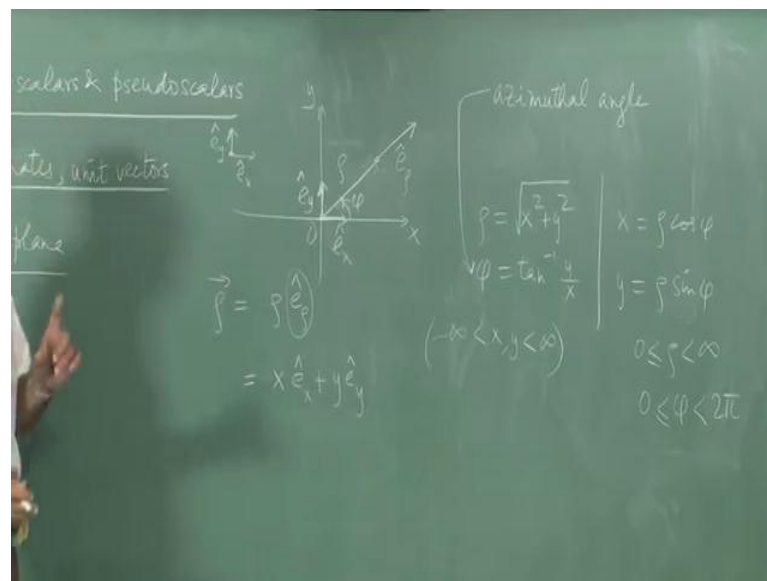 scalars & pseudoscalars
ê_y
ê_x
unit vectors
plane
y
ρ
ê_ρ
ê_y
φ
0
ê_x
x
ρ⃗ = ρ ê_ρ
= x ê_x + y ê_y
azimuthal angle
ρ = √x²+y²
φ = tan⁻¹ y/x
(-∞ < x, y < ∞)
x = ρ cos φ
y = ρ sin φ
0 ≤ ρ < ∞
0 ≤ φ < 2π